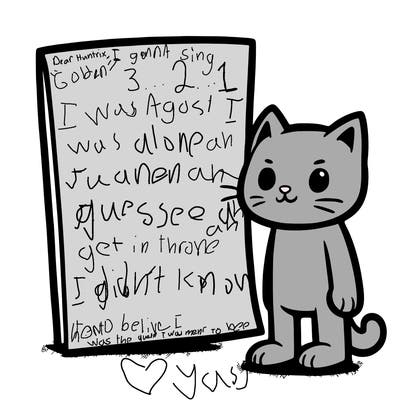 Dear Huntrix, I gonna sing
"Golden" 3... 2... 1
I was Agost I
was alone ah
ruanen ah
guessee ah
get in throne
I didn't know
how to belive I
was the queen I was meant to bee
♡ yass